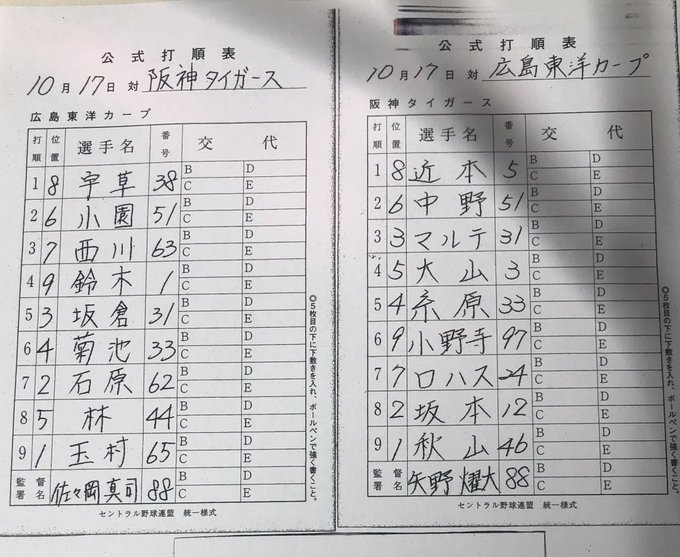 公式打順表
10月17日 対 阪神タイガース
広島東洋カープ
打順 位置 選手名 番号 交代
1 8 宇草 38 B D C E
2 6 小園 51 B D C E
3 7 西川 63 B D C E
4 9 鈴木 1 B D C E
5 3 坂倉 31 B D C E
6 4 菊池 33 B D C E
7 2 石原 62 B D C E
8 5 林 44 B D C E
9 1 玉村 65 B D C E
監督署名 佐々岡真司 88 B D C E
セントラル野球連盟 統一様式
◎5枚目の下に下敷きを入れ、ボールペンで強く書くこと。
公式打順表
10月17日 対 広島東洋カープ
阪神タイガース
打順 位置 選手名 番号 交代
1 8 近本 5 B D C E
2 6 中野 51 B D C E
3 3 マルテ 31 B D C E
4 5 大山 3 B D C E
5 4 糸原 33 B D C E
6 9 小野寺 97 B D C E
7 7 ロハス 24 B D C E
8 2 坂本 12 B D C E
9 1 秋山 46 B D C E
監督署名 矢野燿大 88 B D C E
セントラル野球連盟 統一様式
◎5枚目の下に下敷きを入れ、ボールペンで強く書くこと。